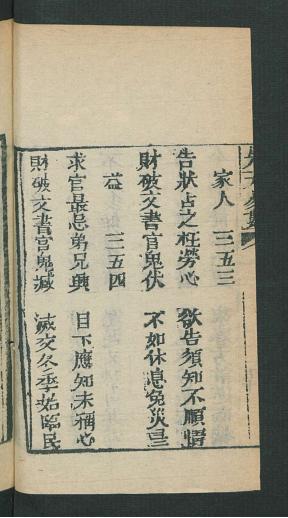 家人 三五三
告狀占之枉勞心 欲告須知不順情
財破文書官鬼伏 不如休息免災星
益 三五四
求官最忌弟兄興 目下應知未稱心
財破文書官鬼滅 滅交冬季始臨民